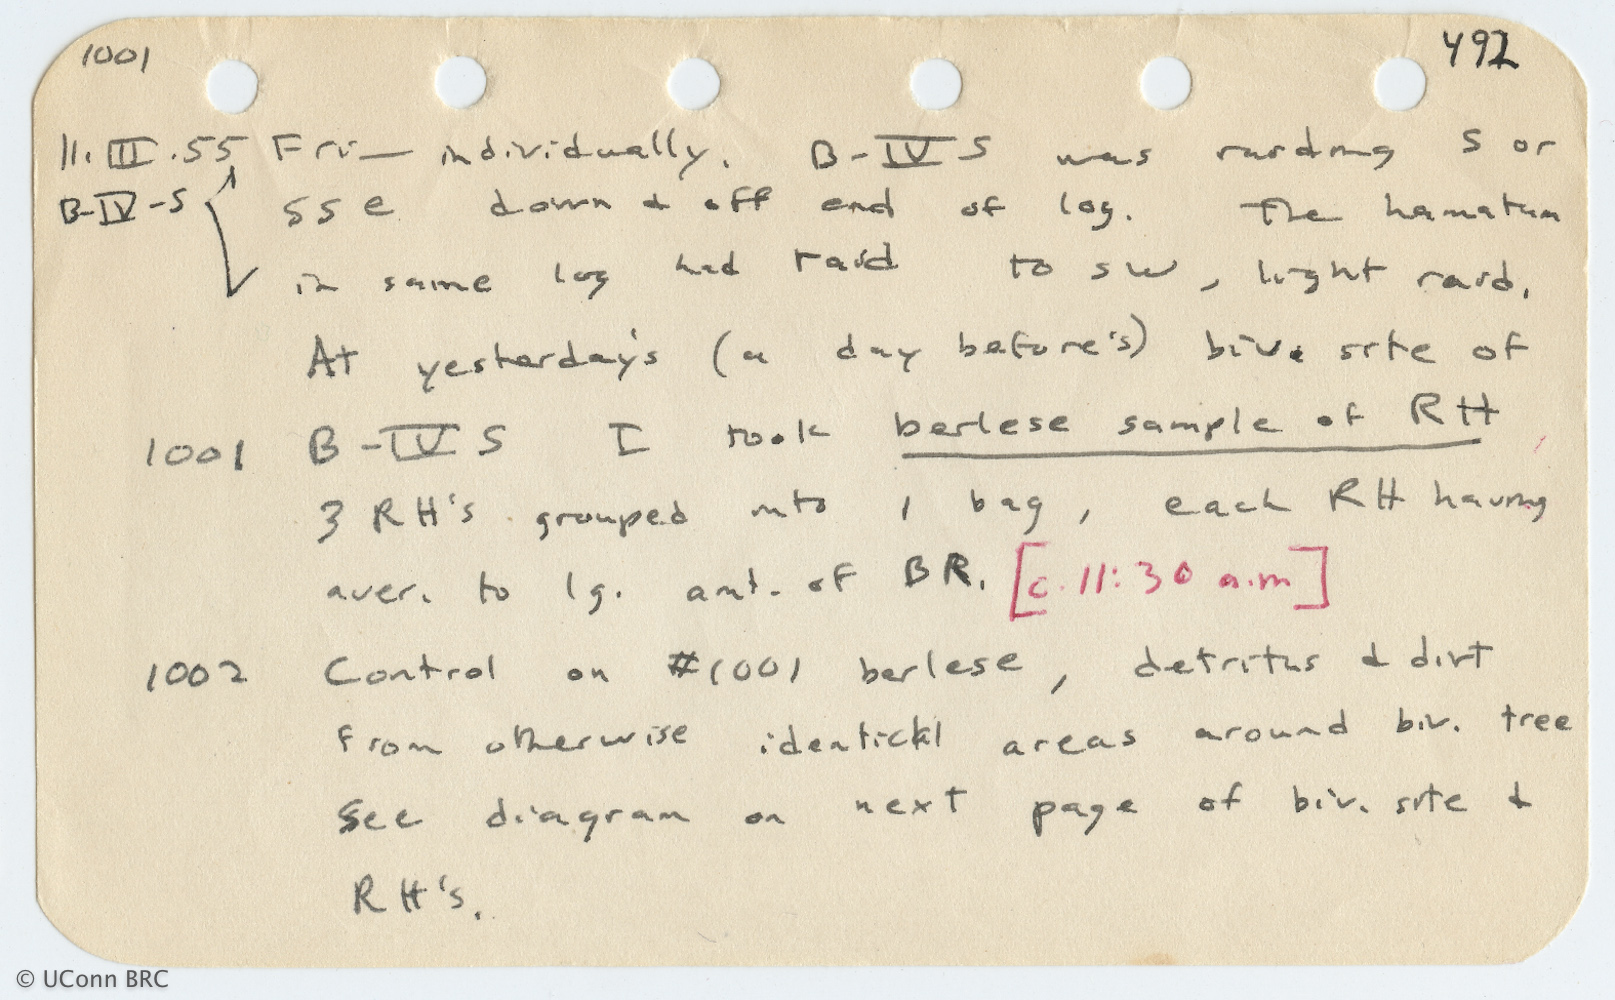 1001 492
11.III.55 Fri— individually. B-IV S was raiding S or
B-IV-S SSE down & off end of log. The hamatum
in same log had raid to SW, light raid.
At yesterday's (a day before's) biv. site of
1001 B-IV S I took berlese sample of RH
3 RH's grouped into 1 bag, each RH having
aver. to lg. amt. of BR. [c. 11:30 a.m]
1002 Control on #1001 berlese, detritus & dirt
from otherwise identickl areas around biv. tree
See diagram on next page of biv. site &
RH's.
© UConn BRC